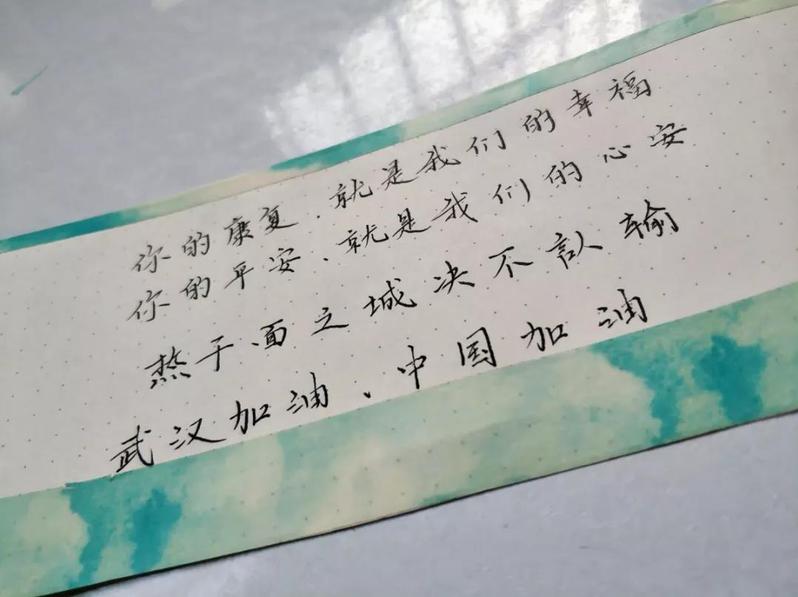 你的康复、就是我们的幸福
你的平安、就是我们的心安
热干面之城决不认输
武汉加油、中国加油